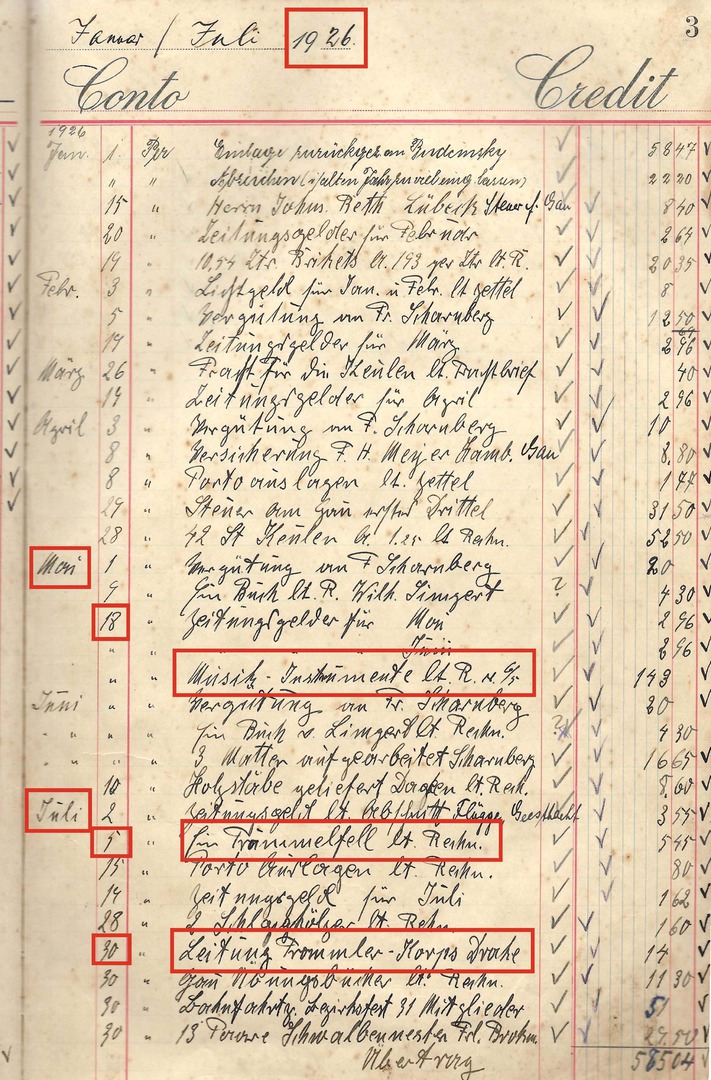 Januar / Juli 1926.
3
Conto Credit
1926
Jan. 1. Per Einlage zurückgez. an Budemsky 58 47
" " Abzeichen (i/alten Jahr zu viel eing. lassen) 22 20
15 " Herrn Johns. Reth Lübeck Steuer f. Gau 8 40
20 " Zeitungsgelder für Februar 2 64
19 " 10,54 Ztr Brikets à 193 per Ztr lt. R. 20 35
Febr. 3 " Lichtgeld für Jan. u Febr. lt zettel 8
5 " Vergütung an Fr. Scharnberg 12 50
14 " Zeitungsgelder für März 2 96
März 26 " Fracht für die Keulen lt. Frachtbrief 40
14 " Zeitungsgelder für April 2 96
April 3 " Vergütung an F. Scharnberg 10
8 " Versicherung F. H. Meyer Hamb. Gau 8.80
8 " Porto auslagen lt. zettel 1 47
29 " Steuer am Gau erster Drittel 31 50
28 " 42 St Keulen à 1.25 lt Rechn. 52 50
Mai 1 " Vergütung an F Scharnberg 20
9 " Ein Buch lt. R. Wilh. Limgert ? 4 30
18 " Zeitungsgelder für Mai 2 96
" " " " " Juni 2 96
" " Musik-Instrumente lt. R. v. 6/5 143
Juni " " Vergütung an Fr. Scharnberg 20
" " " Ein Buch v. Limgert lt Rechn. ? 4 30
" " " 3 Matten aufgearbeitet Scharnberg 16 65
10 " Holzstäbe geliefert lt. Rech. 8.60
Juli 2 " Zeitungsgeld lt. Abschnitt Flügge, Geesthacht 3 55
5 " Ein Trommelfell lt. Rechn. 5 45
15 " Porto Auslagen lt. Rechn. 80
14 " Zeitungsgeld für Juli 1 62
28 " 2 Schlaghölzer lt. Rehn. 1 60
30 " Leitung Trommler-Korps Drahe 14
30 " Gau Übungsbücher lt. Rechn. 11 30
30 " Bahnfahrtg. Bezirksfest 31 Mitglieder 51
30 " 13 Paare Schwalbennester Frl. Brohm. 27.50
Übertrag 585 04